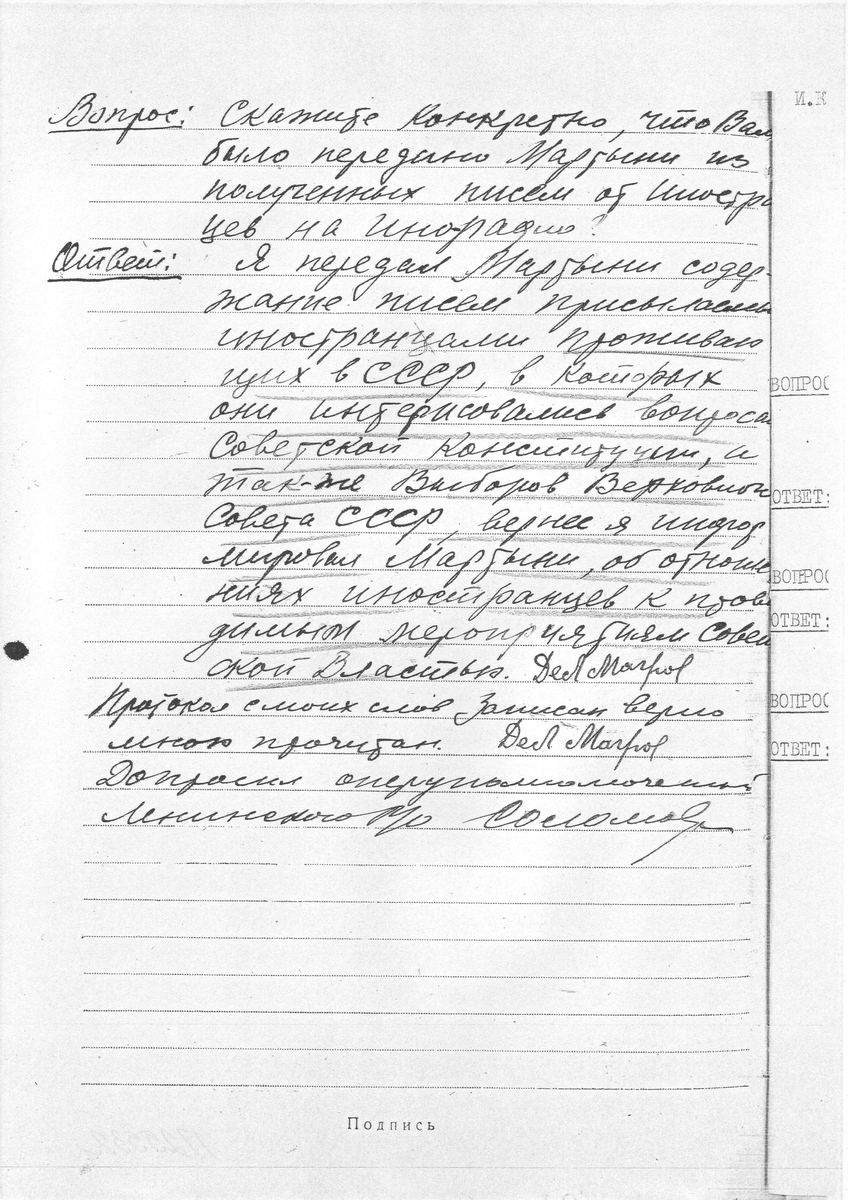 Вопрос: Скажите конкретно, что Вам
было передано Мартыни из
полученных писем от иностра
цев на Инорадио?
Ответ: Я передал Мартыни содер-
жание писем присылаемы
иностранцами проживаю
щих в СССР, в которых
они интерисовались вопроса
Советской Конституции, а
так-же Выборов Верховного
Совета СССР, вернее я инфор
мировал Мартыни, об отноше
ниях иностранцев к прово
димым мероприятиям Совет
ской Властью.
Протокол с моих слов записан верно
мною прочитан.
Допросил оперуполномоченный
Ленинского Р/о
Подпись
И.К
ВОПРОС
ОТВЕТ:
ВОПРОС
ОТВЕТ:
ВОПРОС
ОТВЕТ: